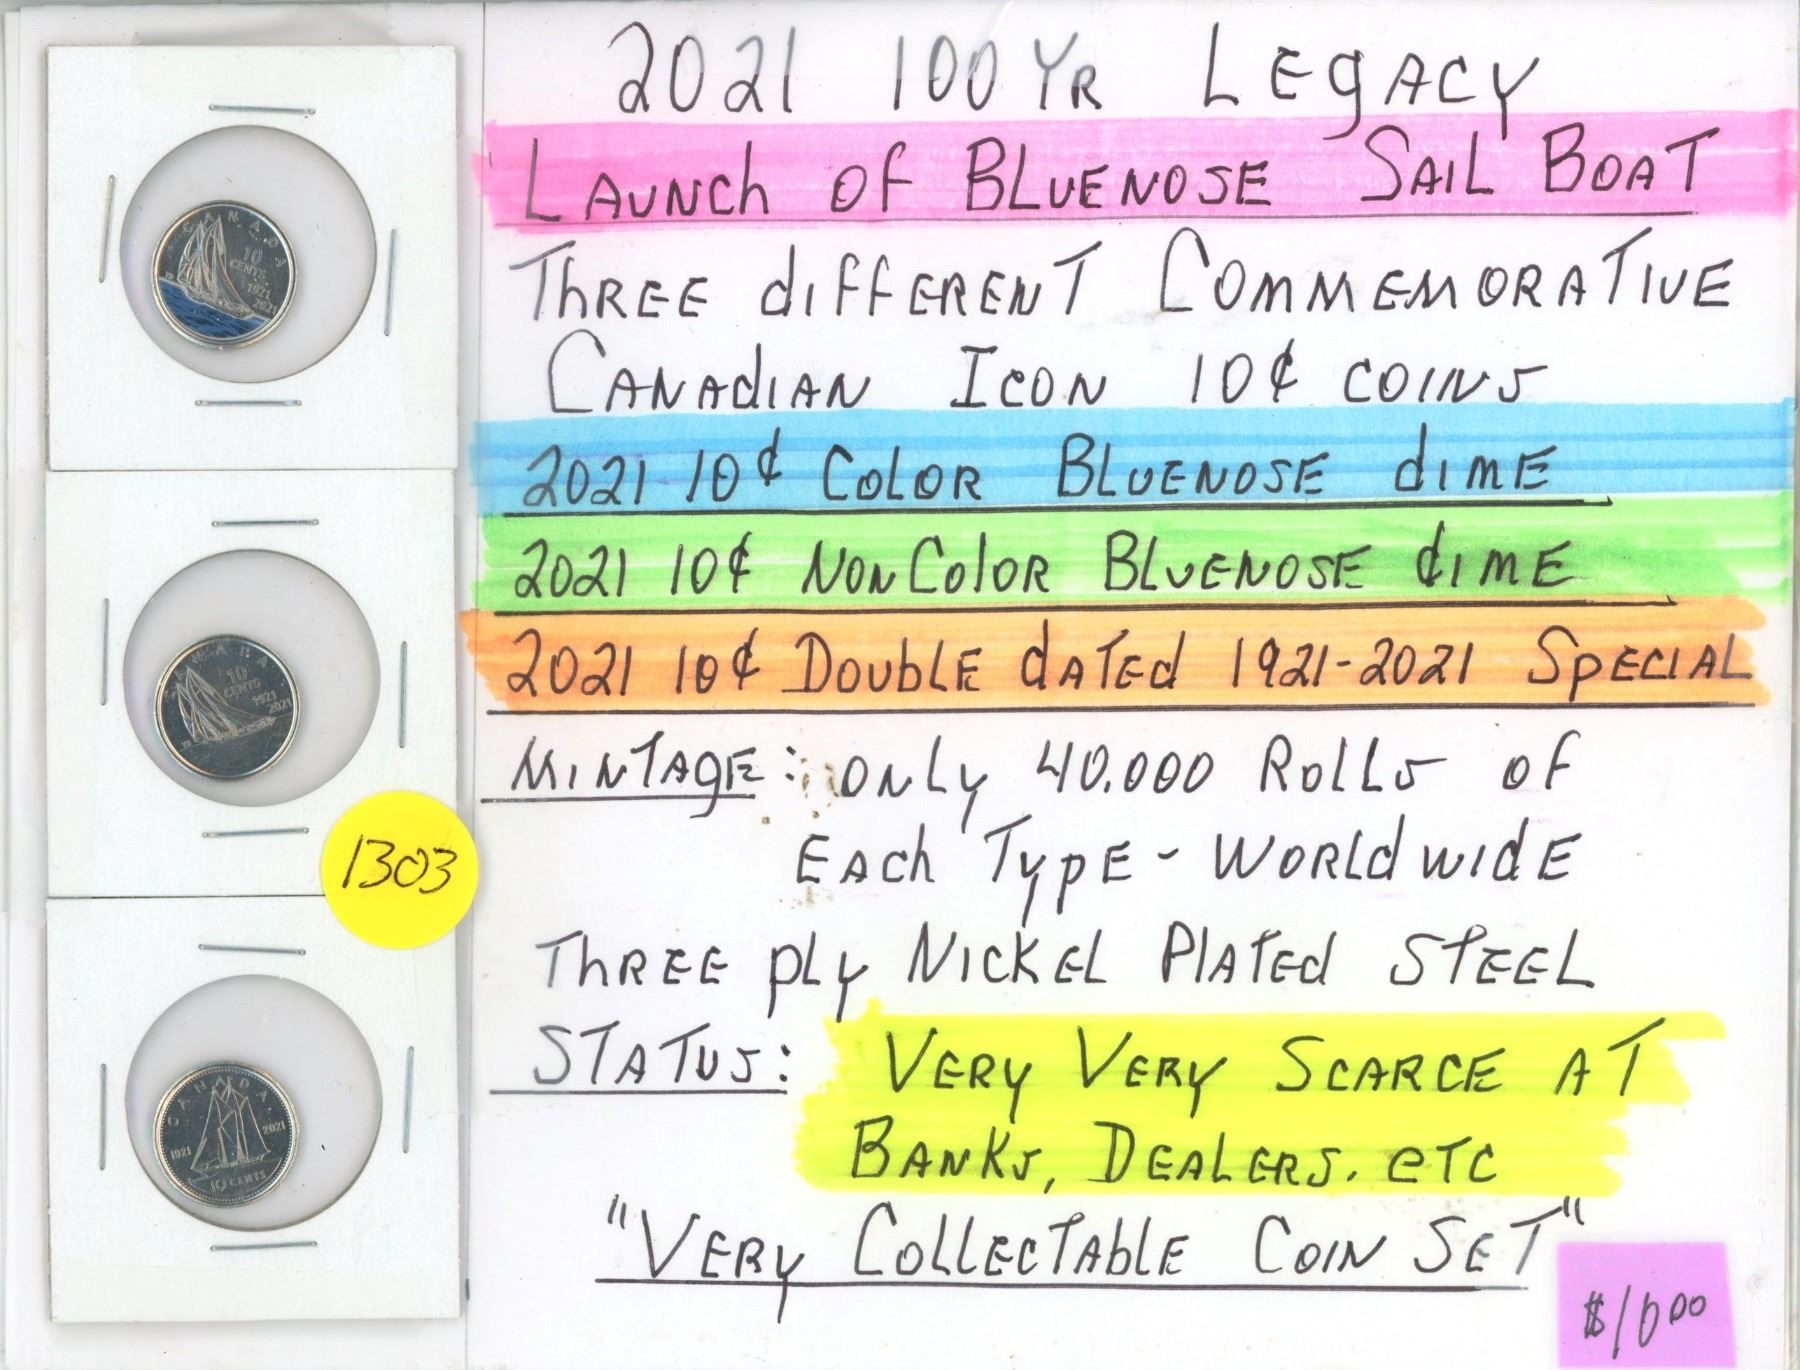 2021 100 YR LEGACY
LAUNCH OF BLUENOSE SAIL BOAT
THREE dIFFERENT COMMEMORATIVE
CANADIAN ICON 10¢ COINS
2021 10¢ COLOR BLUENOSE dIME
2021 10¢ NON COLOR BLUENOSE dIME
2021 10¢ DOUBLE dATEd 1921-2021 SPECIAL
MINTAGE: ONLY 40.000 ROLLS OF
EACH TYPE - WORLDWIDE
THREE PLY NICKEL PLATEd STEEL
STATUS: VERY VERY SCARCE AT
BANKS, DEALERS. ETC
"VERY COLLECTABLE COIN SET"
$10.00
1303
CANADA
10
CENTS
1921
2021
CANADA
10
CENTS
1921
2021
CANADA
1921
2021
10 CENTS